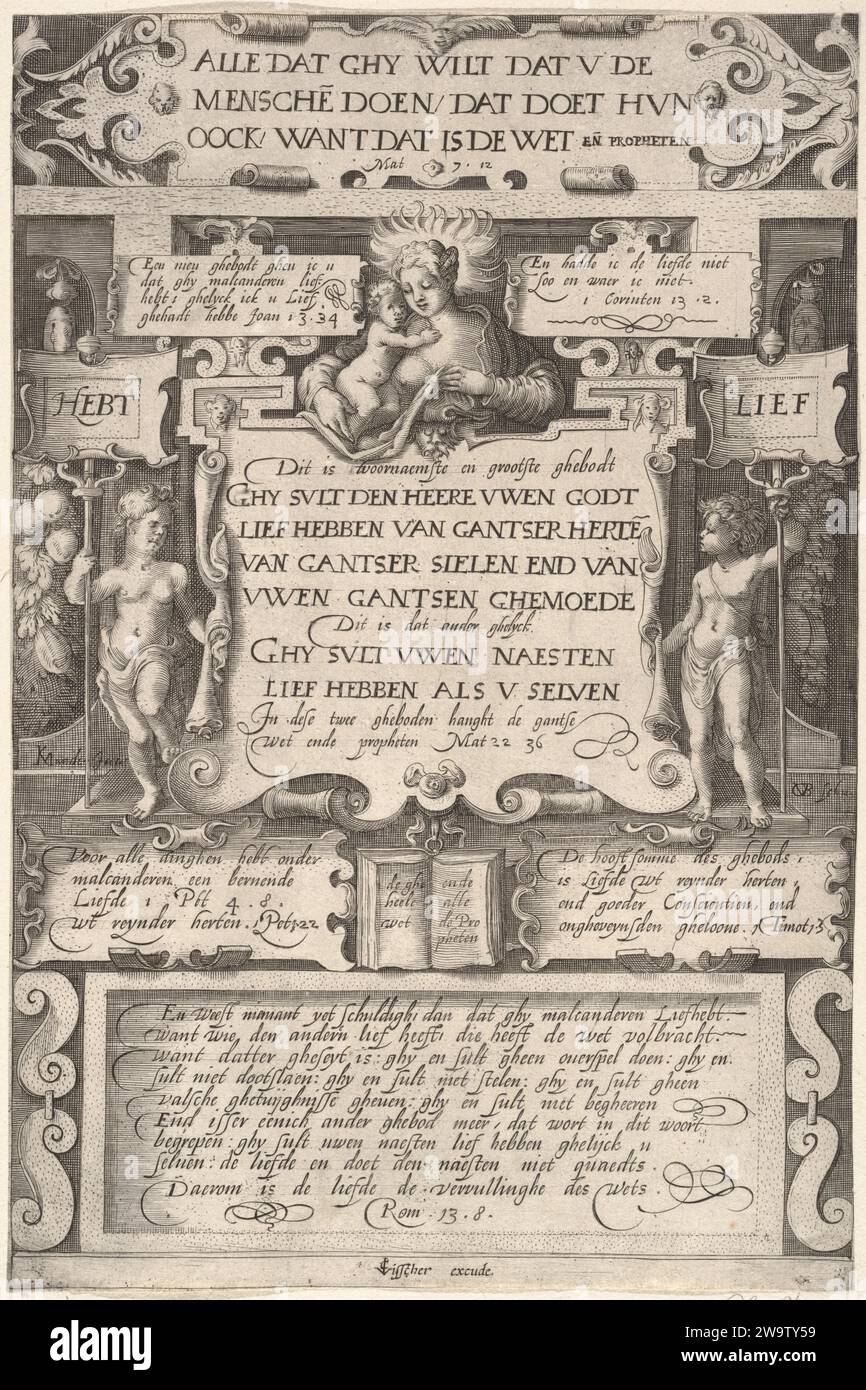 ALLE DAT GHY WILT DAT V DE
MENSCHẼ DOEN/ DAT DOET HVN
OOCK/ WANT DAT IS DE WET EÑ PROPHETEN
Mat 7. 12
Een nieu ghebodt gheu ic u
dat ghy malcanderen lief
hebt: ghelyck ick u Lief,
ghehadt hebbe Joan 13.34
En hadde ic de liefde niet
soo en waer ic niet.
1 Corinten 13.2.
HEBT
LIEF
Dit is voornaemste en grootste ghebodt
GHY SVLT DEN HEERE VWEN GODT
LIEF HEBBEN VAN GANTSER HERTẼ
VAN GANTSER SIELEN END VAN
VWEN GANTSEN GHEMOEDE
Dit is dat ander ghelyck.
GHY SVLT VWEN NAESTEN
LIEF HEBBEN ALS V SELVEN
In dese twee gheboden hanght de gantse
Wet ende propheten Mat 22 36
KMander
CVB
Voor alle dinghen hebt onder
malcanderen een bernende
Liefde 1 Pet 4.8.
wt reynder herten. 1 Pet 1.22
de ghe
heele
wet
ende
alle
de Pro
pheten
De hooft somme des ghebods,
is Liefde wt reynder herten,
end goeder Conscientien, end
ongheveynsden gheloove. 1 Timot 1.5
En weest niemant yet schuldigh: dan dat ghy malcanderen Liefhebt.
want wie den andern lief heeft: die heeft de wet volbracht.
want datter gheseyt is: ghy en sult gheen overspel doen: ghy en
sult niet dootslaen: ghy en sult niet stelen: ghy en sult gheen
valsche ghetuijghnisse gheven: ghy en sult niet begheeren
End isser eenich ander ghebod meer, dat wort in dit woort
begrepen: ghy sult uwen naesten lief hebben ghelijck u
selven: de liefde en doet den naesten niet quaedts.
Daerom is de liefde de vervullinghe des Wets.
Rom. 13.8.
CVisscher excude.
alamy
Image ID: 2W9TY59
www.alamy.com